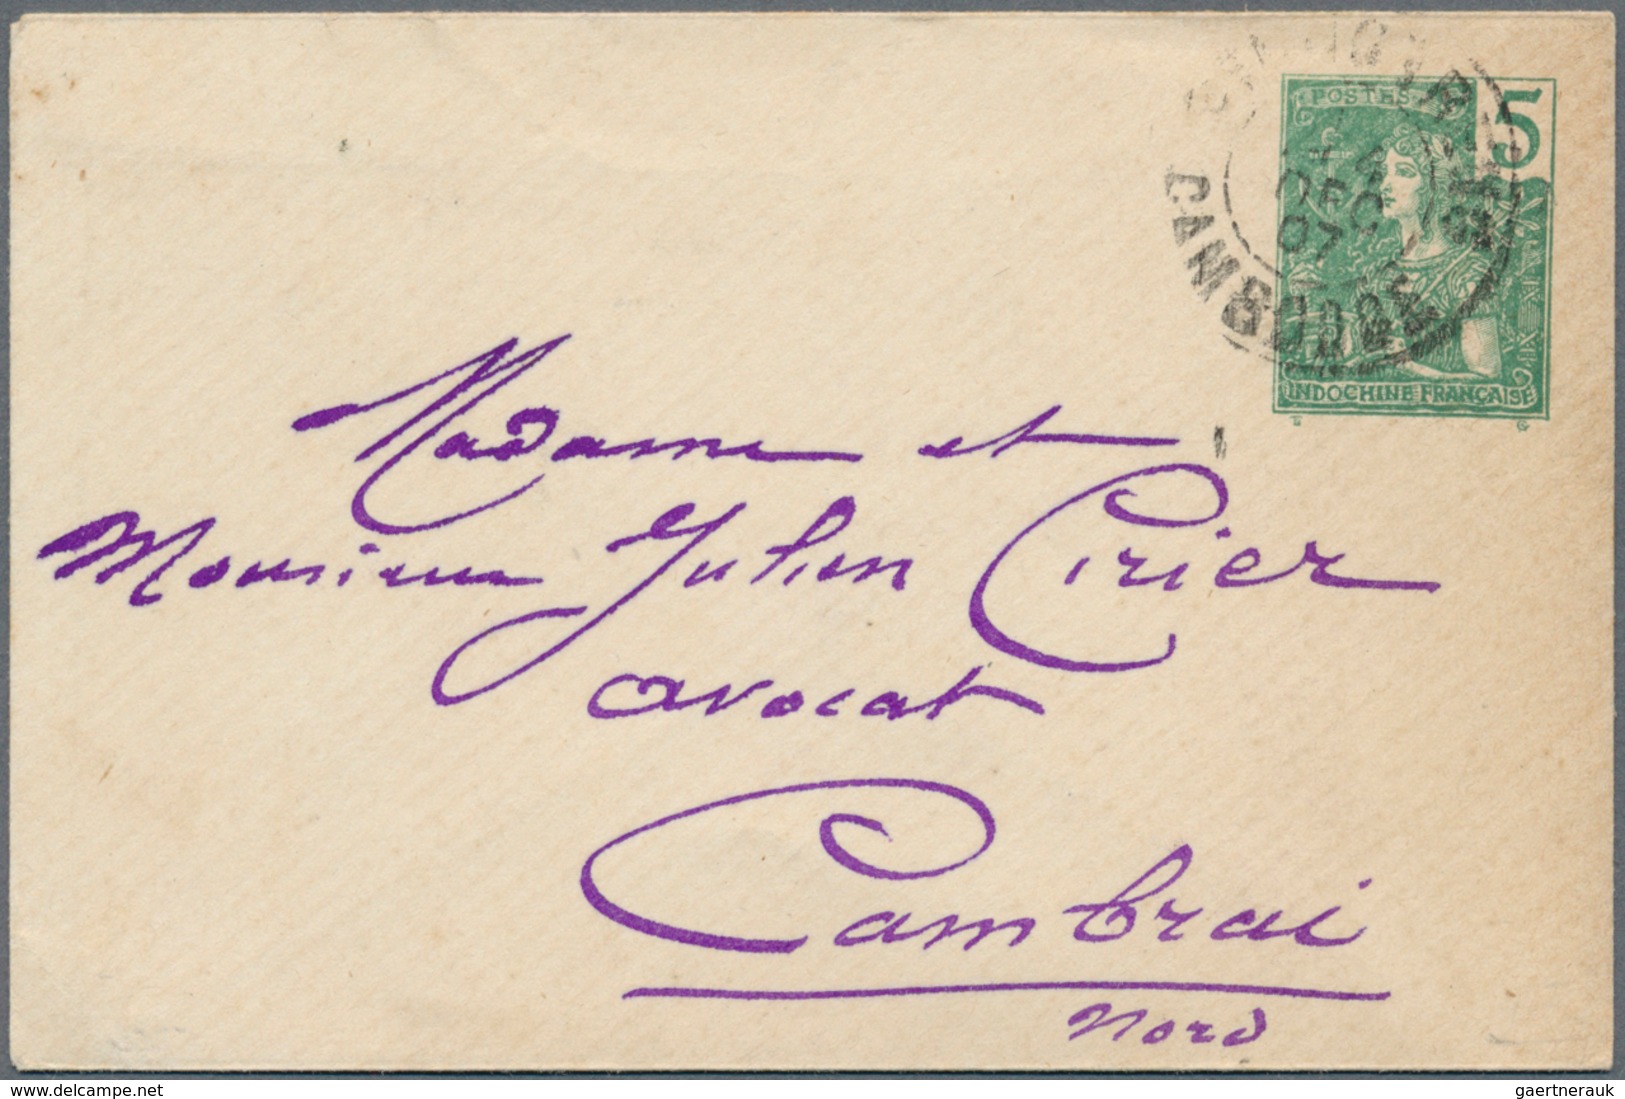 POSTES 5
DEC
07
CAMBODGE
INDOCHINE FRANÇAISE
Madame et
Monsieur Julien Cirier
avocat
Cambrai
Nord
www.delcampe.net
gaertnerauk